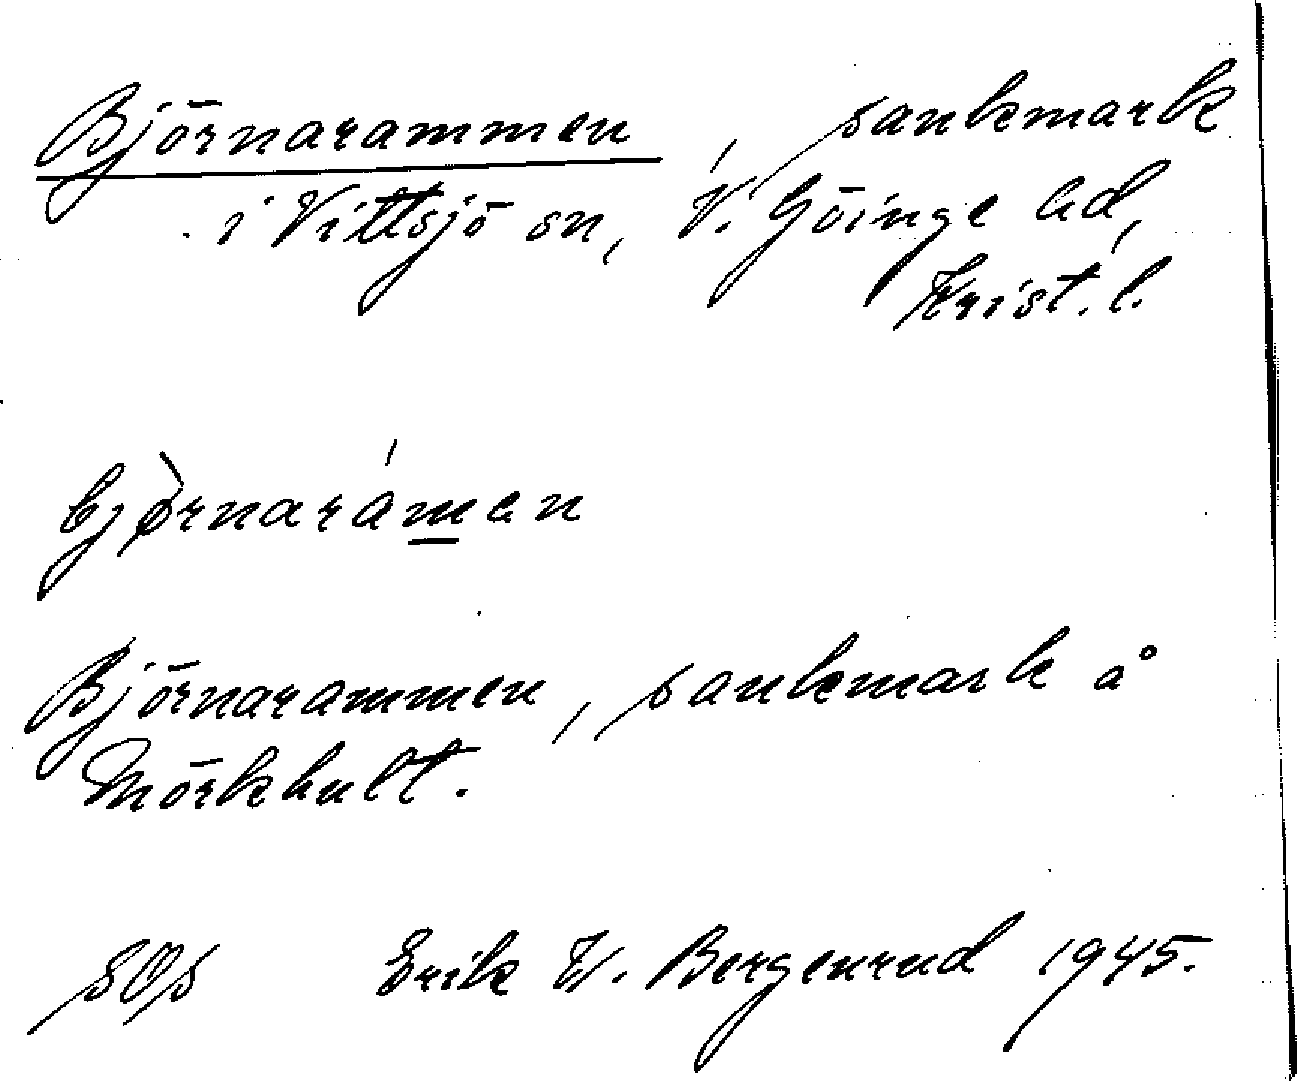 Björnarammen, sankmark
i Vittsjö sn, V. Göinge hd,
Krist. l.
bjø̀rnarámen
Björnarammen, sankmark å
Mörkhult.
SOS Erik W. Bergenrud 1945.